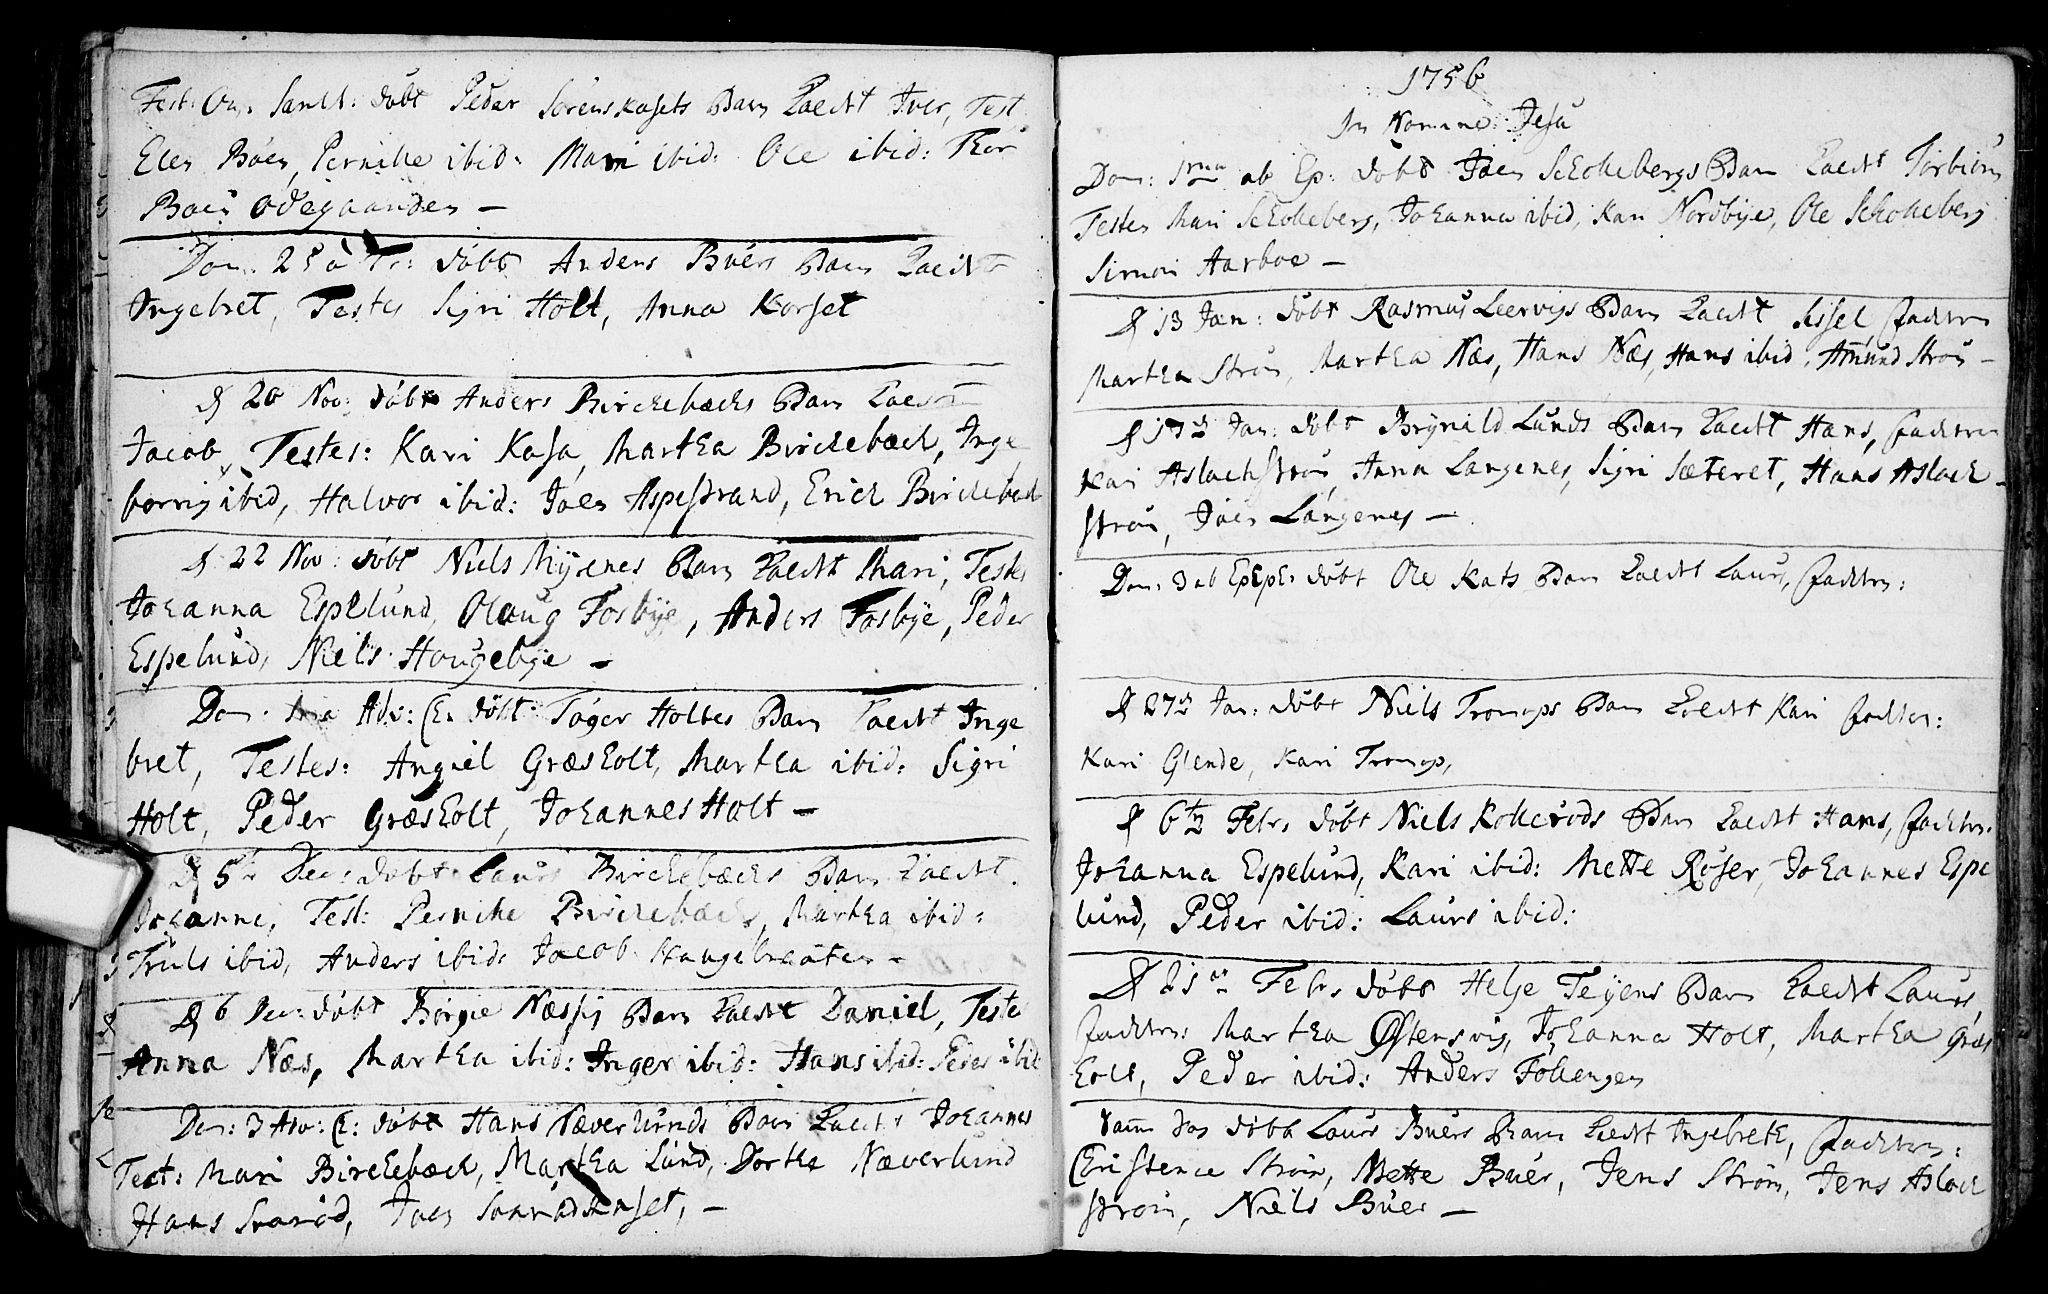 Fest: Om: Sanct: døbt Peder Sørenskasets Barn kaldt Iver, Test
Elen Bøen, Pernille ibid: Mari ibid: Ole ibid: Thor
Bøen Ødegaarden –
Dom: 25 à Tr: døbt Anders Buers Barn kaldt
Ingebret, Testes Sigri Holt, Anna Korset
D 20 Nov: døbt Anders Birckebæcks Barn kaldt
Jacob, Testes: Kari Kasa, Martha Birckebæck, Inge
borrig ibid, Halvor ibid: Joen Aspestrand, Erick Birckebæck
D 22 Nov: døbt Niels Myrenes Barn kaldt Mari, Testes
Johanna Espelund, Olaug Fosbye, Anders Fosbye, Peder
Espelund, Niels Haugebye –
Dom: 1ma Adv: C: døbt Tøger Holtes Barn kaldt Inge
bret, Testes: Angiel Græsholt, Martha ibid: Sigri
Holt, Peder Græsholt, Johannes Holt –
D 5te Dec: døbt Laurs Birckebæcks Barn kaldt
Johanne, Test: Pernille Birckebæck, Martha ibid:
Truls ibid, Anders ibid: Jacob Haugebraaten –
D 6 Dec: døbt Børgie Næssis Barn kaldt Daniel, Testes
Anna Næs, Martha ibid: Inger ibid: Hans ibid: Peder ibid
Dom: 3 Adv: C: døbt Hans Næverlunds Barn kaldt Johannes
Test: Mari Birckebæck, Martha Lund, Dorthe Næverlund
Hans Svarød, Joen –
1756
In Nomine Jesu
Dom: 1ma ab Ep: døbt Joen Skollebergs Barn kaldt Torbiørn
Testes Mari Skolleberg, Johanna ibid, Kari Nordbye, Ole Skolleberg
Simon Aarboe –
D 13 Jan: døbt Rasmus Leervigs Barn kaldt Sissel faddren
Martha Strøm, Martha Næs, Hans Næs, Hans ibid: Amund Strøm –
D 17de Jan: døbt Brynild Lunds Barn kaldt Hans, faddren
Kari Aslachstrøm, Anna Langenes, Sigri Sæteret, Hans Aslack
strøm, Joen Langenes –
Dom: 3 ab Ep: døbt Ole Kats Barn kaldt Laurs, faddren:
D 27de Jan: døbt Niels Tromops Barn kaldt Kari faddren:
Kari Glende, Kari Tromop,
D 6te Febr: døbt Niels Kollerøds Barn kaldt Hans, faddren.
Johanna Espelund, Kari ibid: Mette Røser, Johannes Espe
lund, Peder ibid: Laurs ibid:
D 21de Febr: døbt Helje Teyens Barn kaldt Laurs,
faddren: Martha Østensvig, Johanna Holt, Martha Græs
holt, Peder ibid: Anders Follengen
Samme dag døbt Laurs Buers Barn kaldt Ingebreth, faddren:
Christence Strøm, Mette Buer, Jens Strøm, Jens Aslack
strøm, Niels Buer –